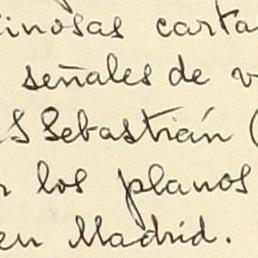 cinosas carta
señales de v
S Sebastián (
r los planos
en Madrid.